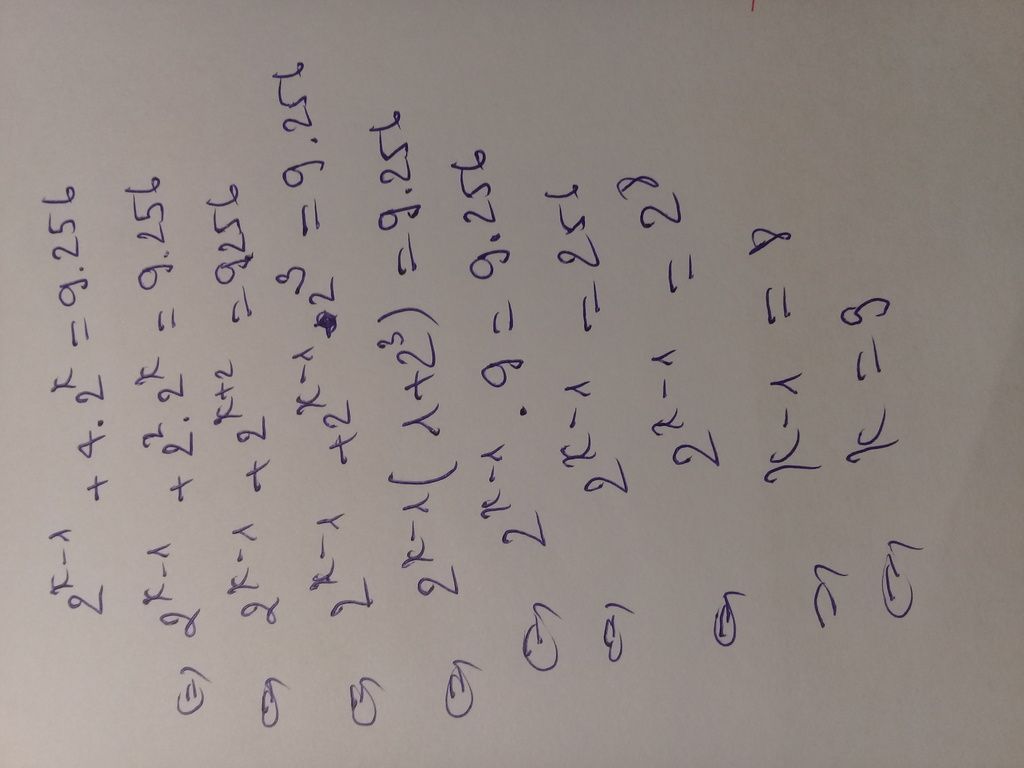 2^{x-1} + 4.2^x = 9.256
⇔ 2^{x-1} + 2^2.2^x = 9.256
⇔ 2^{x-1} + 2^{x+2} = 9.256
⇔ 2^{x-1} + 2^{x-1}.2^3 = 9.256
⇔ 2^{x-1}(1+2^3) = 9.256
⇔ 2^{x-1}.9 = 9.256
⇔ 2^{x-1} = 256
⇔ 2^{x-1} = 2^8
⇒ x-1 = 8
⇔ x = 9